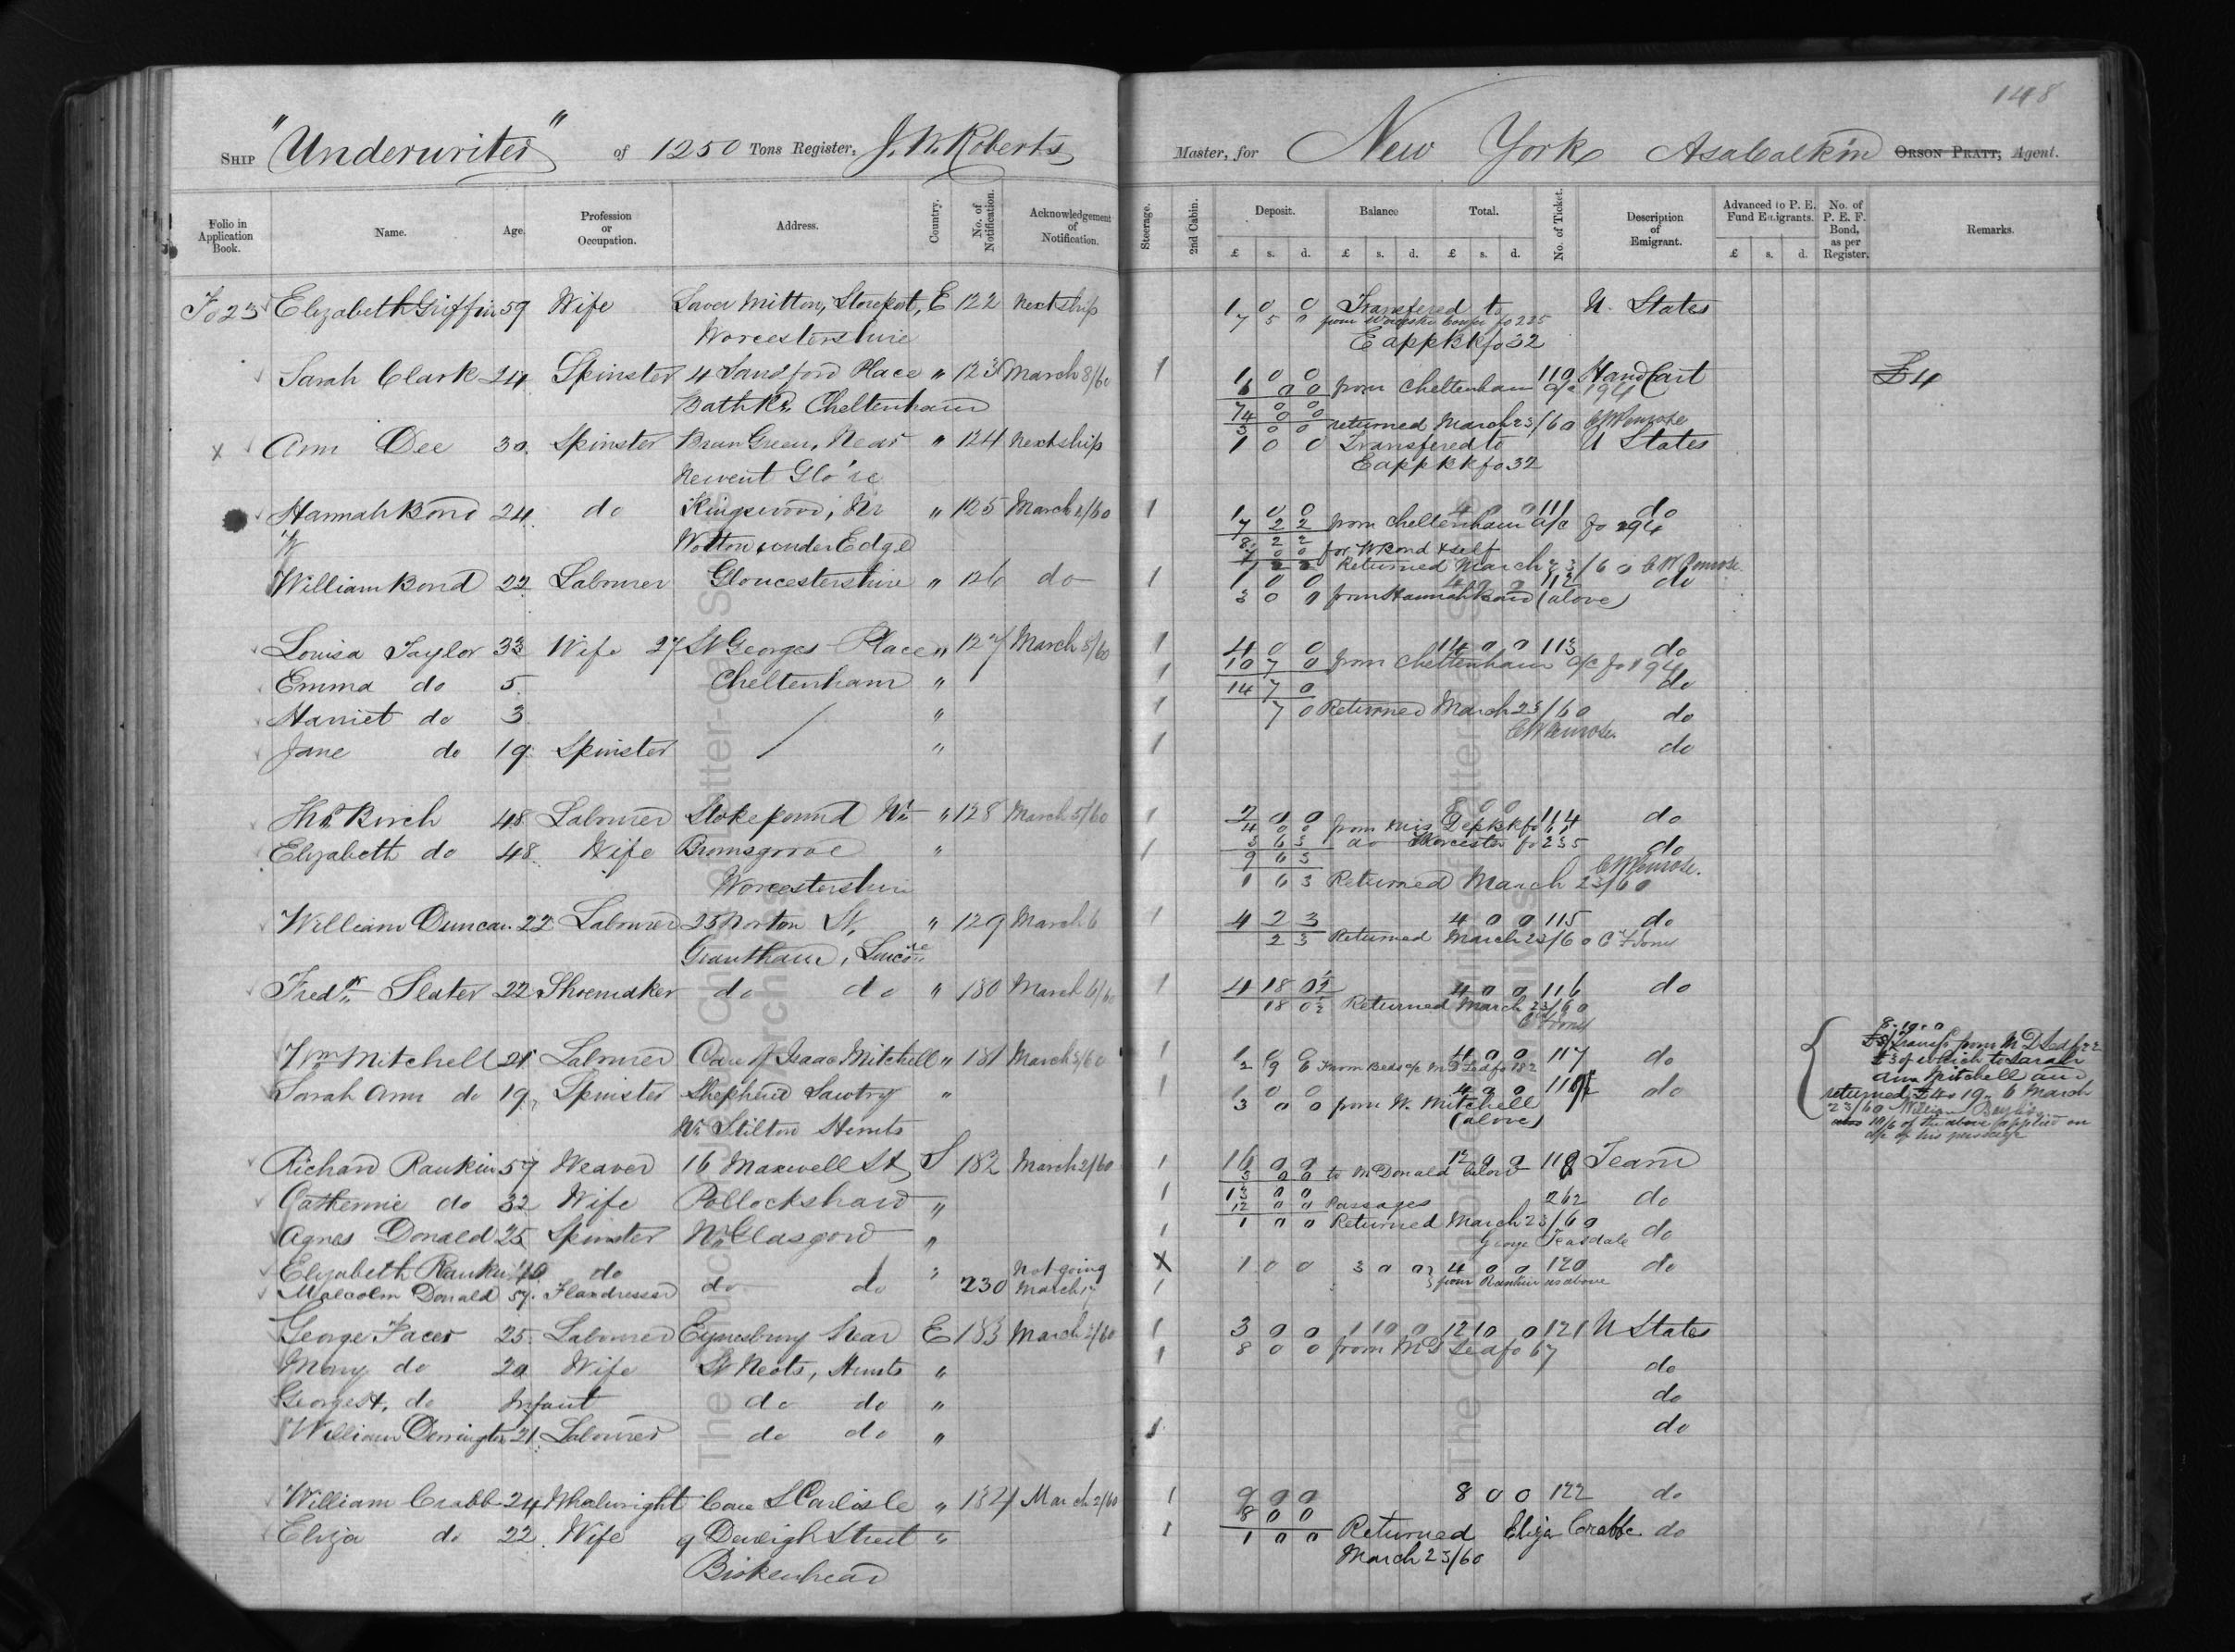 148
Ship "Underwriter" of 1250 Tons Register, J. W. Roberts Master, for New York Asa Calkin Orson Pratt, Agent.
Folio in Application Book. Name. Age. Profession or Occupation. Address. Country. No. of Notification. Acknowledgement of Notification. Steerage. 2nd Cabin. Deposit. Balance Total. No. of Ticket. Description of Emigrant. Advanced to P. E. Fund Emigrants. No. of P. E. F. Bond, as per Register. Remarks.
£ s. d. £ s. d. £ s. d. £ s. d.
Fo 25 Elizabeth Griffin 59 Wife Mitton, E 122 next ship 1 0 0 Transfered to U. States
7 5 0 from Worcester fo 235
Worcestershire E app Bk fo 32
Sarah Clark 24 Spinster 4 Sandford Place " 123 March 8/60 1 1 0 0 110 Hand Cart £4
6 0 0 from Cheltenham a/c 194
Bath Rd. Cheltenham 7 0 0
4 0 0
3 0 0 returned March 23/60 C W Penrose
x Ann Dee 30 Spinster Green, Near " 124 next ship 1 0 0 Transfered to U States
Newent E app Bk fo 32
Hannah Bond 24 do Kingswood, Nr " 125 March 1/60 1 1 0 0 4 0 0 111 do
7 2 2 from Cheltenham a/c fo 194
W Wotton under Edge 8 2 2
7 0 0 for W Bond & self
1 2 2 Returned March 23/60 C W Penrose
William Bond 22 Labourer Gloucestershire " 126 do 1 1 0 0 4 0 0 112 do
3 0 0 from Hannah Bond (above)
Louisa Taylor 33 Wife 27 St Georges Place " 127 March 5/60 1 4 0 0 14 0 0 113 do
10 7 0 from Cheltenham a/c fo 194
Emma do 5 Cheltenham " 1 14 7 0 do
Harriet do 3 " 1 7 0 Returned March 23/60 do
C W Penrose
Jane do 19 Spinster / " 1 do
Thos Birch 48 Labourer Stokepound Nr " 128 March 5/60 1 2 0 0 8 0 0 114 do
4 0 0 from
Elizabeth do 48 Wife Bromsgrove " 1 3 6 3 do Worcester fo 235 do
9 6 3 C W Penrose.
Worcestershire 1 6 3 Returned March 23/60
William Duncan 22 Labourer 25 Norton St, " 129 March 6 1 4 2 3 4 0 0 115 do
2 3 Returned March 23/60
Grantham,
Fredk Slater 22 Shoemaker do do " 180 March 6/60 1 4 18 0½ 4 0 0 116 do
18 0½ Returned March 23/60
Wm Mitchell 21 Labourer Care of Isaac Mitchell " 181 March 3/60 1 1 0 0 4 0 0 117 do
Sarah Ann do 19 Spinster Shepherd Sawtry " 1 1 0 0 4 0 0 do
3 0 0 from W. Mitchell
Nr Stilton Hunts (above)
8 . 19 . 0
of which to Sarah
Ann Mitchell and
returned March
23/60 William
of the above applied on
of his passage
Richard Rankin 57 Weaver 16 Maxwell St, S 182 March 2/60 1 16 0 0 12 0 0 118 Team
3 0 0 to M Donald below
Catherine do 32 Wife Pollockshaw " 1 13 0 0 262 do
12 0 0 Passages
Agnes Donald 25 Spinster Nr Glasgow " 1 1 0 0 Returned March 23/60 do
George Teasdale
Elizabeth Rankin do " Not going X 1 0 0 3 0 0 4 0 0 120 do
Malcolm Donald 57 do do 230 March 1 from Rankin as above
George Pacer 25 Labourer Eynesbury Near E 183 March 2/60 1 3 0 0 1 10 0 12 10 0 121 U States
8 0 0 from M D Led fo 67
Mary do 20 Wife St Neots, Hunts " 1 do
George H. do Infant do do " do
William Derrington 21 Labourer do do " 1 do
William Crabb 24 Whelwright Care S Carlisle " 184 March 2/60 1 9 0 0 8 0 0 122 do
8 0 0
Eliza do 22 Wife 9 Street " 1 1 0 0 Returned Eliza Crabb do
Birkenhead March 23/60